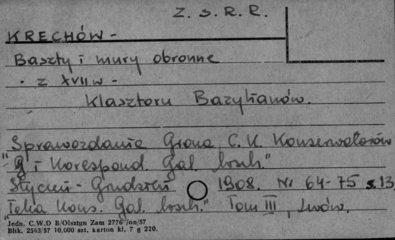 Z. S. R. R.
KRECHÓW -
Baszty i mury obronne
- z XVII w -
Klasztoru Bazylianów.
"Sprawozdania Grona C. K. Konserwatorów
i Korespond. Gal. wsch."
Styczeń - Grudzień 1908. Nr 64-75 s. 13
"Teka Kons. Gal. wsch." Tom III, Lwów.
Jedn. C.W.D B/Olsztyn Zam 2776/nn/57
Bltk. 2563/57 10.000 szt. karton kl. 7 g 220.